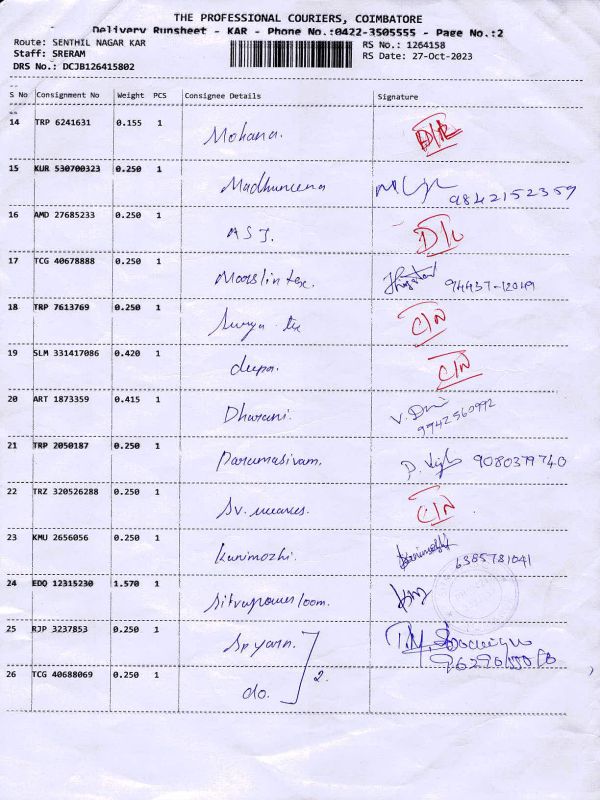 THE PROFESSIONAL COURIERS, COIMBATORE
Delivery Runsheet - KAR - Phone No.:0422-3505555 - Page No.:2
Route: SENTHIL NAGAR KAR
Staff: SRERAM
DRS No.: DCJB126415802
RS No.: 1264158
RS Date: 27-Oct-2023
S No Consignment No Weight PCS Consignee Details Signature
14 TRP 6241631 0.155 1
Mohana.
15 KUR 530700323 0.250 1
Madhuneena 9842152359
16 AMD 27685233 0.250 1
MSJ. D/L
17 TCG 40678888 0.250 1
Moorslin tex. 94437-12019
18 TRP 7613769 0.250 1
Surya tex C/N
19 SLM 331417086 0.420 1
deepa. C/N
20 ART 1873359 0.415 1
Dharani. V. 9942560992
21 TRP 2050187 0.250 1
Paramasivam. P. 9080379740
22 TRZ 320526288 0.250 1
Sv. C/N
23 KMU 2656056 0.250 1
Kanimozhi. 6385781041
24 EDQ 12315230 1.570 1
Sitrapowerloom.
25 RJP 3237853 0.250 1
Sp yarn.
26 TCG 40688069 0.250 1
do. 2.